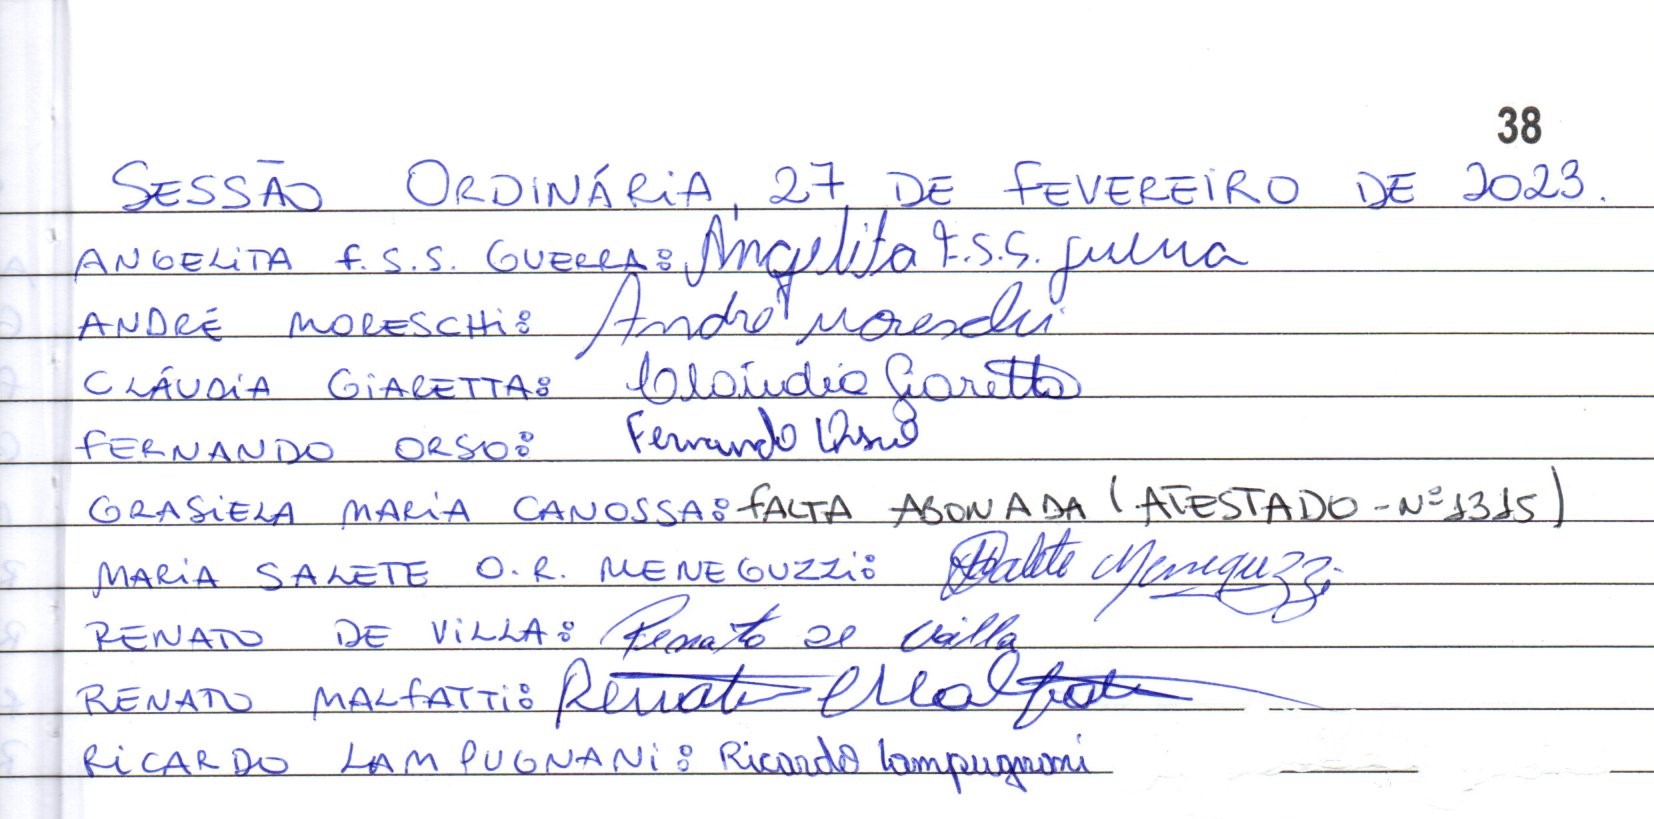 38
SESSÃO ORDINÁRIA, 27 DE FEVEREIRO DE 2023.
ANGELITA F.S.S. GUERRA: Angelita F.S.S. Guerra
ANDRÉ MORESCHI: André Moreschi
CLÁUDIA GIARETTA: Cláudia Giaretta
FERNANDO ORSO: Fernando Orso
GRASIELA MARIA CANOSSA: FALTA ABONADA (ATESTADO - Nº 1315)
MARIA SALETE O.R. MENEGUZZI: Salete Meneguzzi
RENATO DE VILLA: Renato de Villa
RENATO MALFATTI: Renato Malfatti
RICARDO LAMPUGNANI: Ricardo Lampugnani